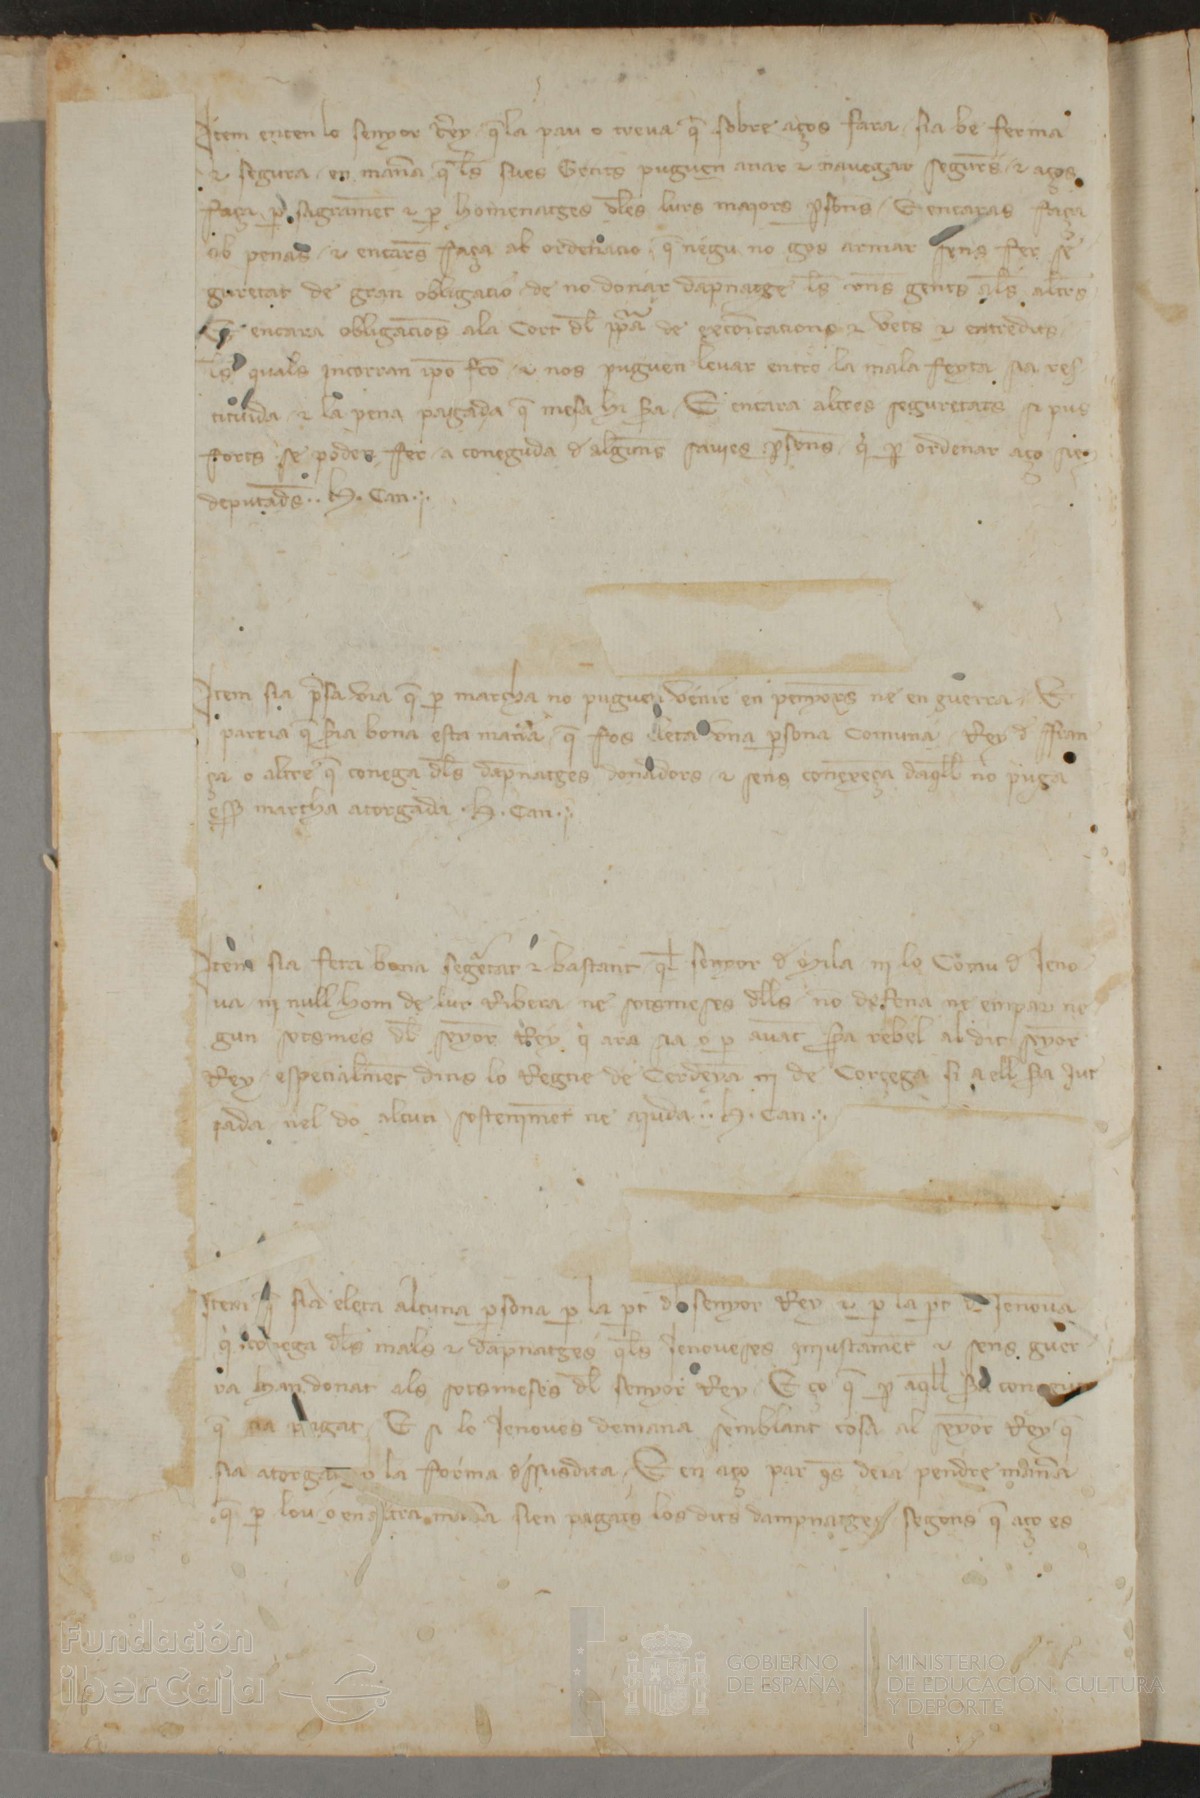 Item enten lo senyor Rey q̄ la pau o treua q̄ sobre aços fara sia be ferma
⁊ segura en man̄a q̄ ls̄ sues Gents puguen anar ⁊ nauegar segurs̄ ⁊ aços
faça ꝑ sagramēt ⁊ ꝑ homenatges dl̄es lurs maiors ꝑsons̄ E encaras faça
ab penas ⁊ encars̄ faça ab ordenacio q̄ negu no gos armar sens fer se
guretat de gran obligacio de no donar dapnatge ls̄ vns̄ gents als̄ altrs̄
E encara obligacions ala Cort dl̄ pp̄a de ⁊ vets ⁊ entredits
ls̄ quals incorran ip̄o fcō ⁊ nos puguen leuar entro la mala feyta sia res
tituida ⁊ la pena pagada q̄ mesa hi s̄ra E encara altres seguretats si pus
forts se poden fer a coneguda d alguns sauies ꝑsons̄ q̇ ꝑ ordenar aço sien
deputads̄ .. H. Can.
Item sia p̄sa via q̄ ꝑ marcha no puguen venir en penyors̄ ne en guerra E
parria q̄ s̄ria bona esta man̄a q̄ fos eleta vna ꝑsona Comuna Rey d Fran
ça o altre q̄ conega dl̄s dapnatges donadors ⁊ sens conexeça daq̄ll no puga
ess̄ marcha atorgada . H. Can.
Item sia feta bona segretat ⁊ bastant ql̄ senyor d Mila ni lo Comu d Jeno
ua ni null hom de lur Ribera ne sotsmeses dl̄ls no defena ne empar ne
gun sotsmes dl̄ seyōr Rey q̇ ara sia o ꝑ auāt s̄ra rebel al dit seyōr
Rey especialmēt dins lo Regne de Cerdeya ni de Corçega si a ell s̄ra
pada nel do alcun sostenimēt ne aiuda .. H. Can.
Item q̄ sia eleta alcuna ꝑsona ꝑ la ꝑt dl̄ senyor Rey ⁊ ꝑ la ꝑt d Jenoua
q̇ conega dl̄s mals ⁊ dapnatges ql̄s Jenoueses iniustamēt ⁊ sens guer
ra han donat als sotsmeses dl̄ senyor Rey E ço q̄ ꝑ aq̄ll s̄ra conegut
q̄ sia pagat E si lo Jenoues demana semblant cosa al seyōr Rey q̄
sia atorgat o la forma dssusdita E en aço par q̄s deia pendre man̄a
q̄ ꝑ lou o en altra man̄a sien pagats los dits dampnatges segons q̄ aço es
Fundación
iberCaja
GOBIERNO
DE ESPAÑA
MINISTERIO
DE EDUCACIÓN, CULTURA
Y DEPORTE